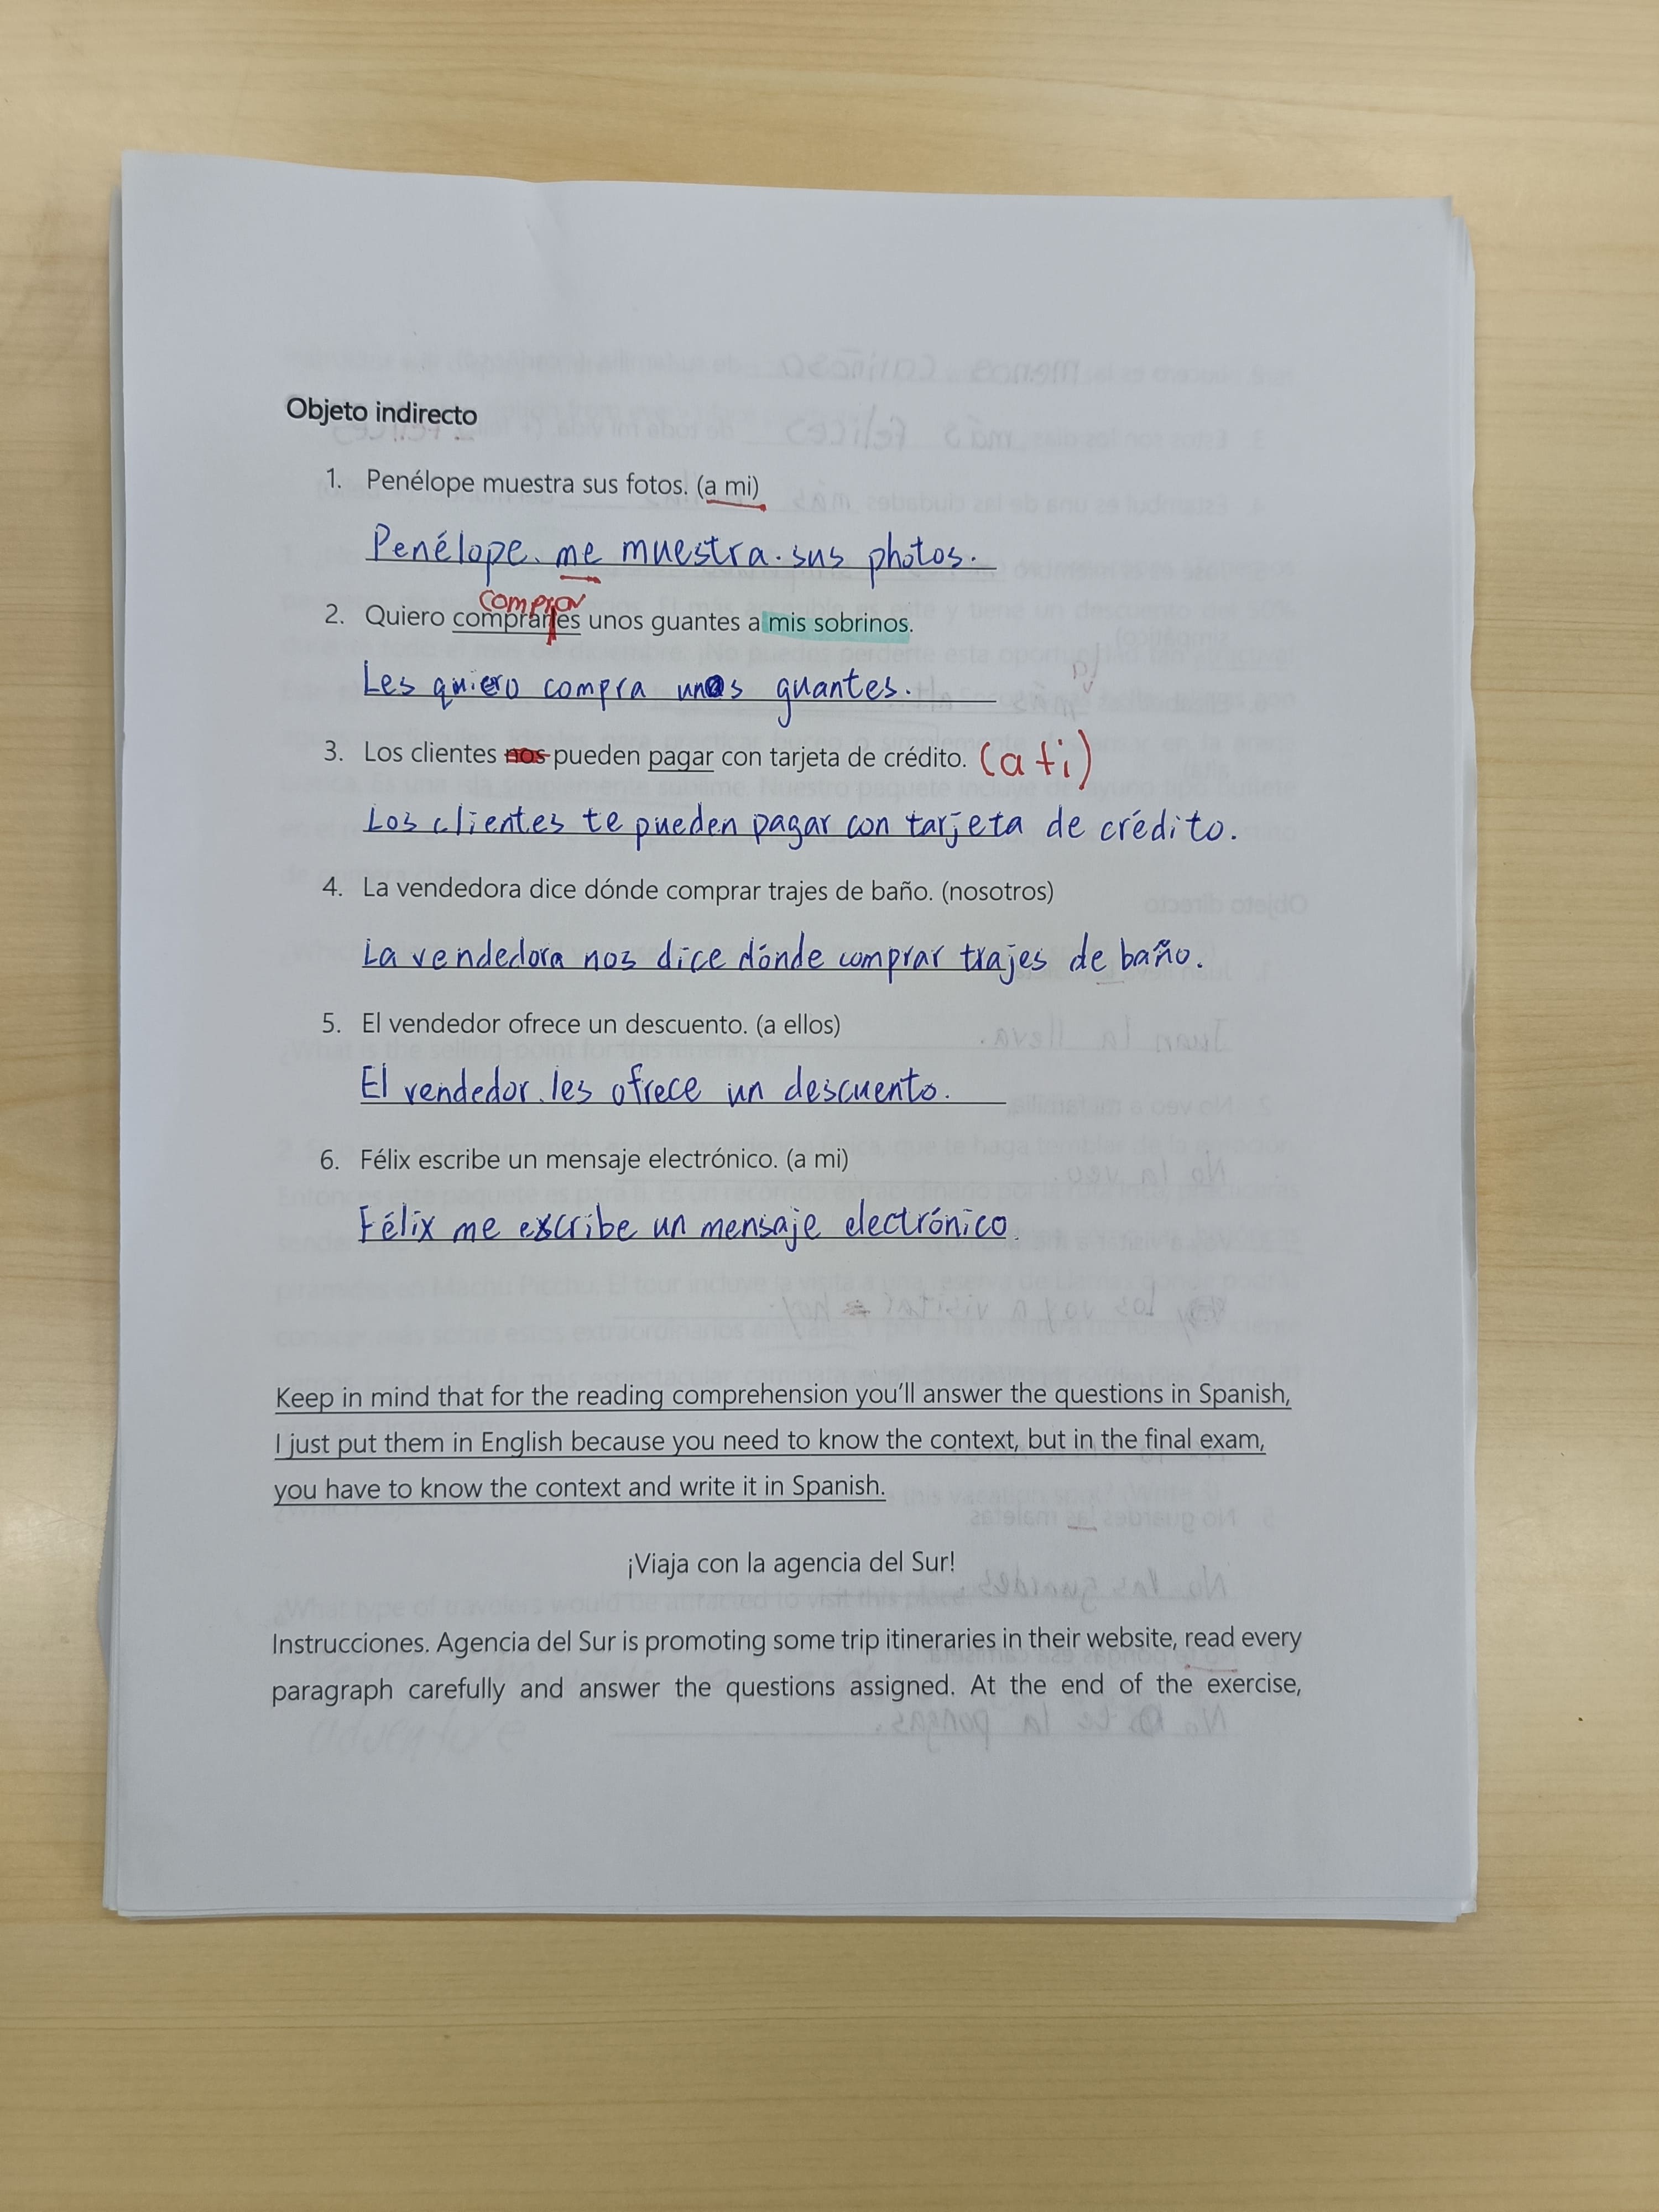 Objeto indirecto
1. Penélope muestra sus fotos. (a mi)
Penélope me muestra sus photos.
comprar
2. Quiero comprarles unos guantes a mis sobrinos.
Les quiero compra unos guantes.
3. Los clientes nos pueden pagar con tarjeta de crédito. (a ti)
Los clientes te pueden pagar con tarjeta de crédito.
4. La vendedora dice dónde comprar trajes de baño. (nosotros)
La vendedora nos dice dónde comprar trajes de baño.
5. El vendedor ofrece un descuento. (a ellos)
El vendedor les ofrece un descuento.
6. Félix escribe un mensaje electrónico. (a mi)
Félix me escribe un mensaje electrónico.
Keep in mind that for the reading comprehension you’ll answer the questions in Spanish,
I just put them in English because you need to know the context, but in the final exam,
you have to know the context and write it in Spanish.
¡Viaja con la agencia del Sur!
Instrucciones. Agencia del Sur is promoting some trip itineraries in their website, read every
paragraph carefully and answer the questions assigned. At the end of the exercise,